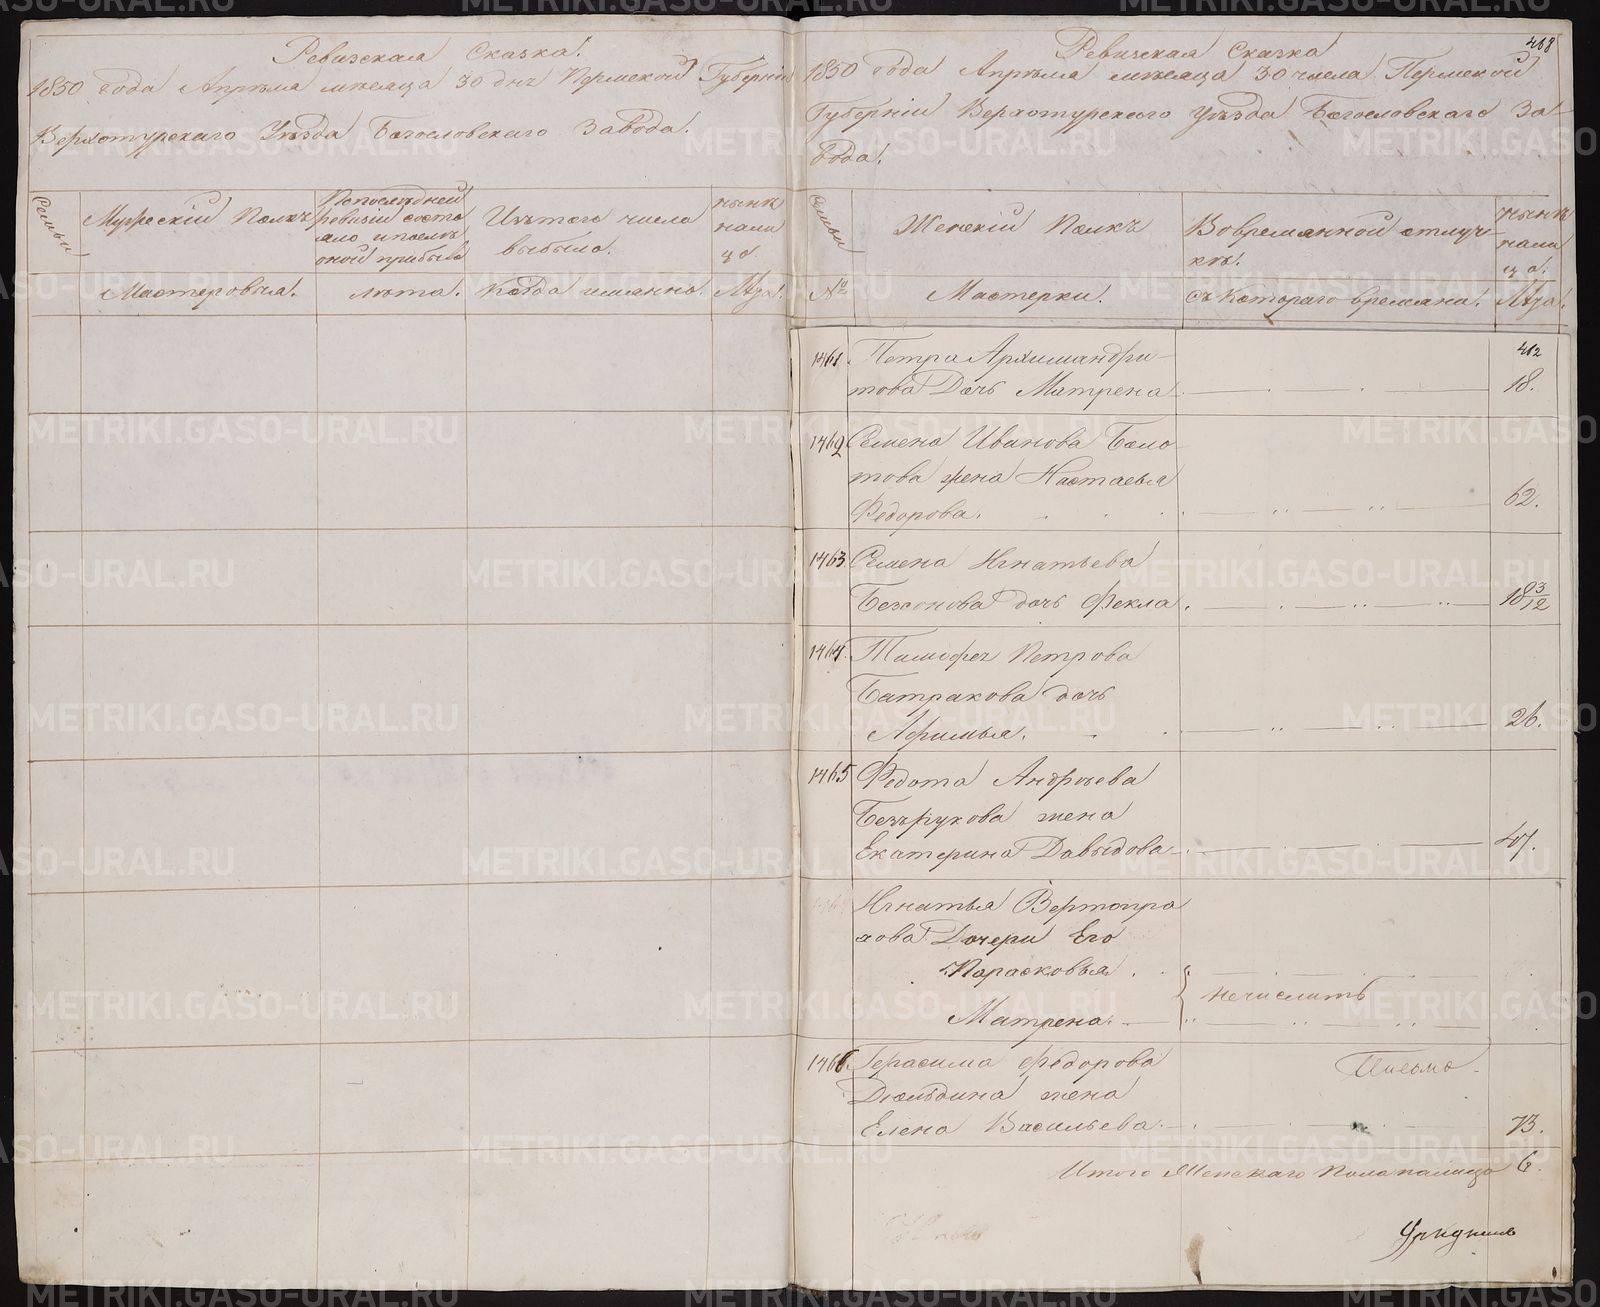 Ревизская Сказка.
1850 года Апреля месяца 30 дня Пермской Губернии
Верхотурскаго Уезда Богословскаго Завода.
Семьи
Мужеский Полкъ
По последней ревизии состояло и после оной прибыло
Изъ того числа выбыло.
Ныне на лицо.
Мастеровыя.
лета.
Когда имянно.
Лета.
408
Ревизская Сказка
1850 года Апреля месяца 30 числа Пермской
Губернии Верхотурскаго Уезда Богословскаго За-
вода.
Семьи
Женский Полкъ
Во времянной отлуч-
ке.
Ныне
нали
цо.
№
Мастерки.
съ Котораго времяни.
Лета.
412
1461. Петра Архимандри-
това Дочь Матрена 18.
1462 Семена Иванова Боло-
това жена Настасья
Федорова. 62.
1463 Семена Игнатьева
дочь Фекла. 18 3/12
1464. Тимофея Петрова
Батракова дочь
Афимья. 26.
1465 Федота Андреева
Безрукова жена
Екатерина Давыдова 47.
Игнатья Вертопра
хова Дочери Его
Парасковья
Матрена.
нечислить
1466. Герасима Федорова
Дюльдина жена
Елена Васильева. 73.
Письмо.
Итого Женскаго Пола налицо 6.
METRIKI.GASO-URAL.RU